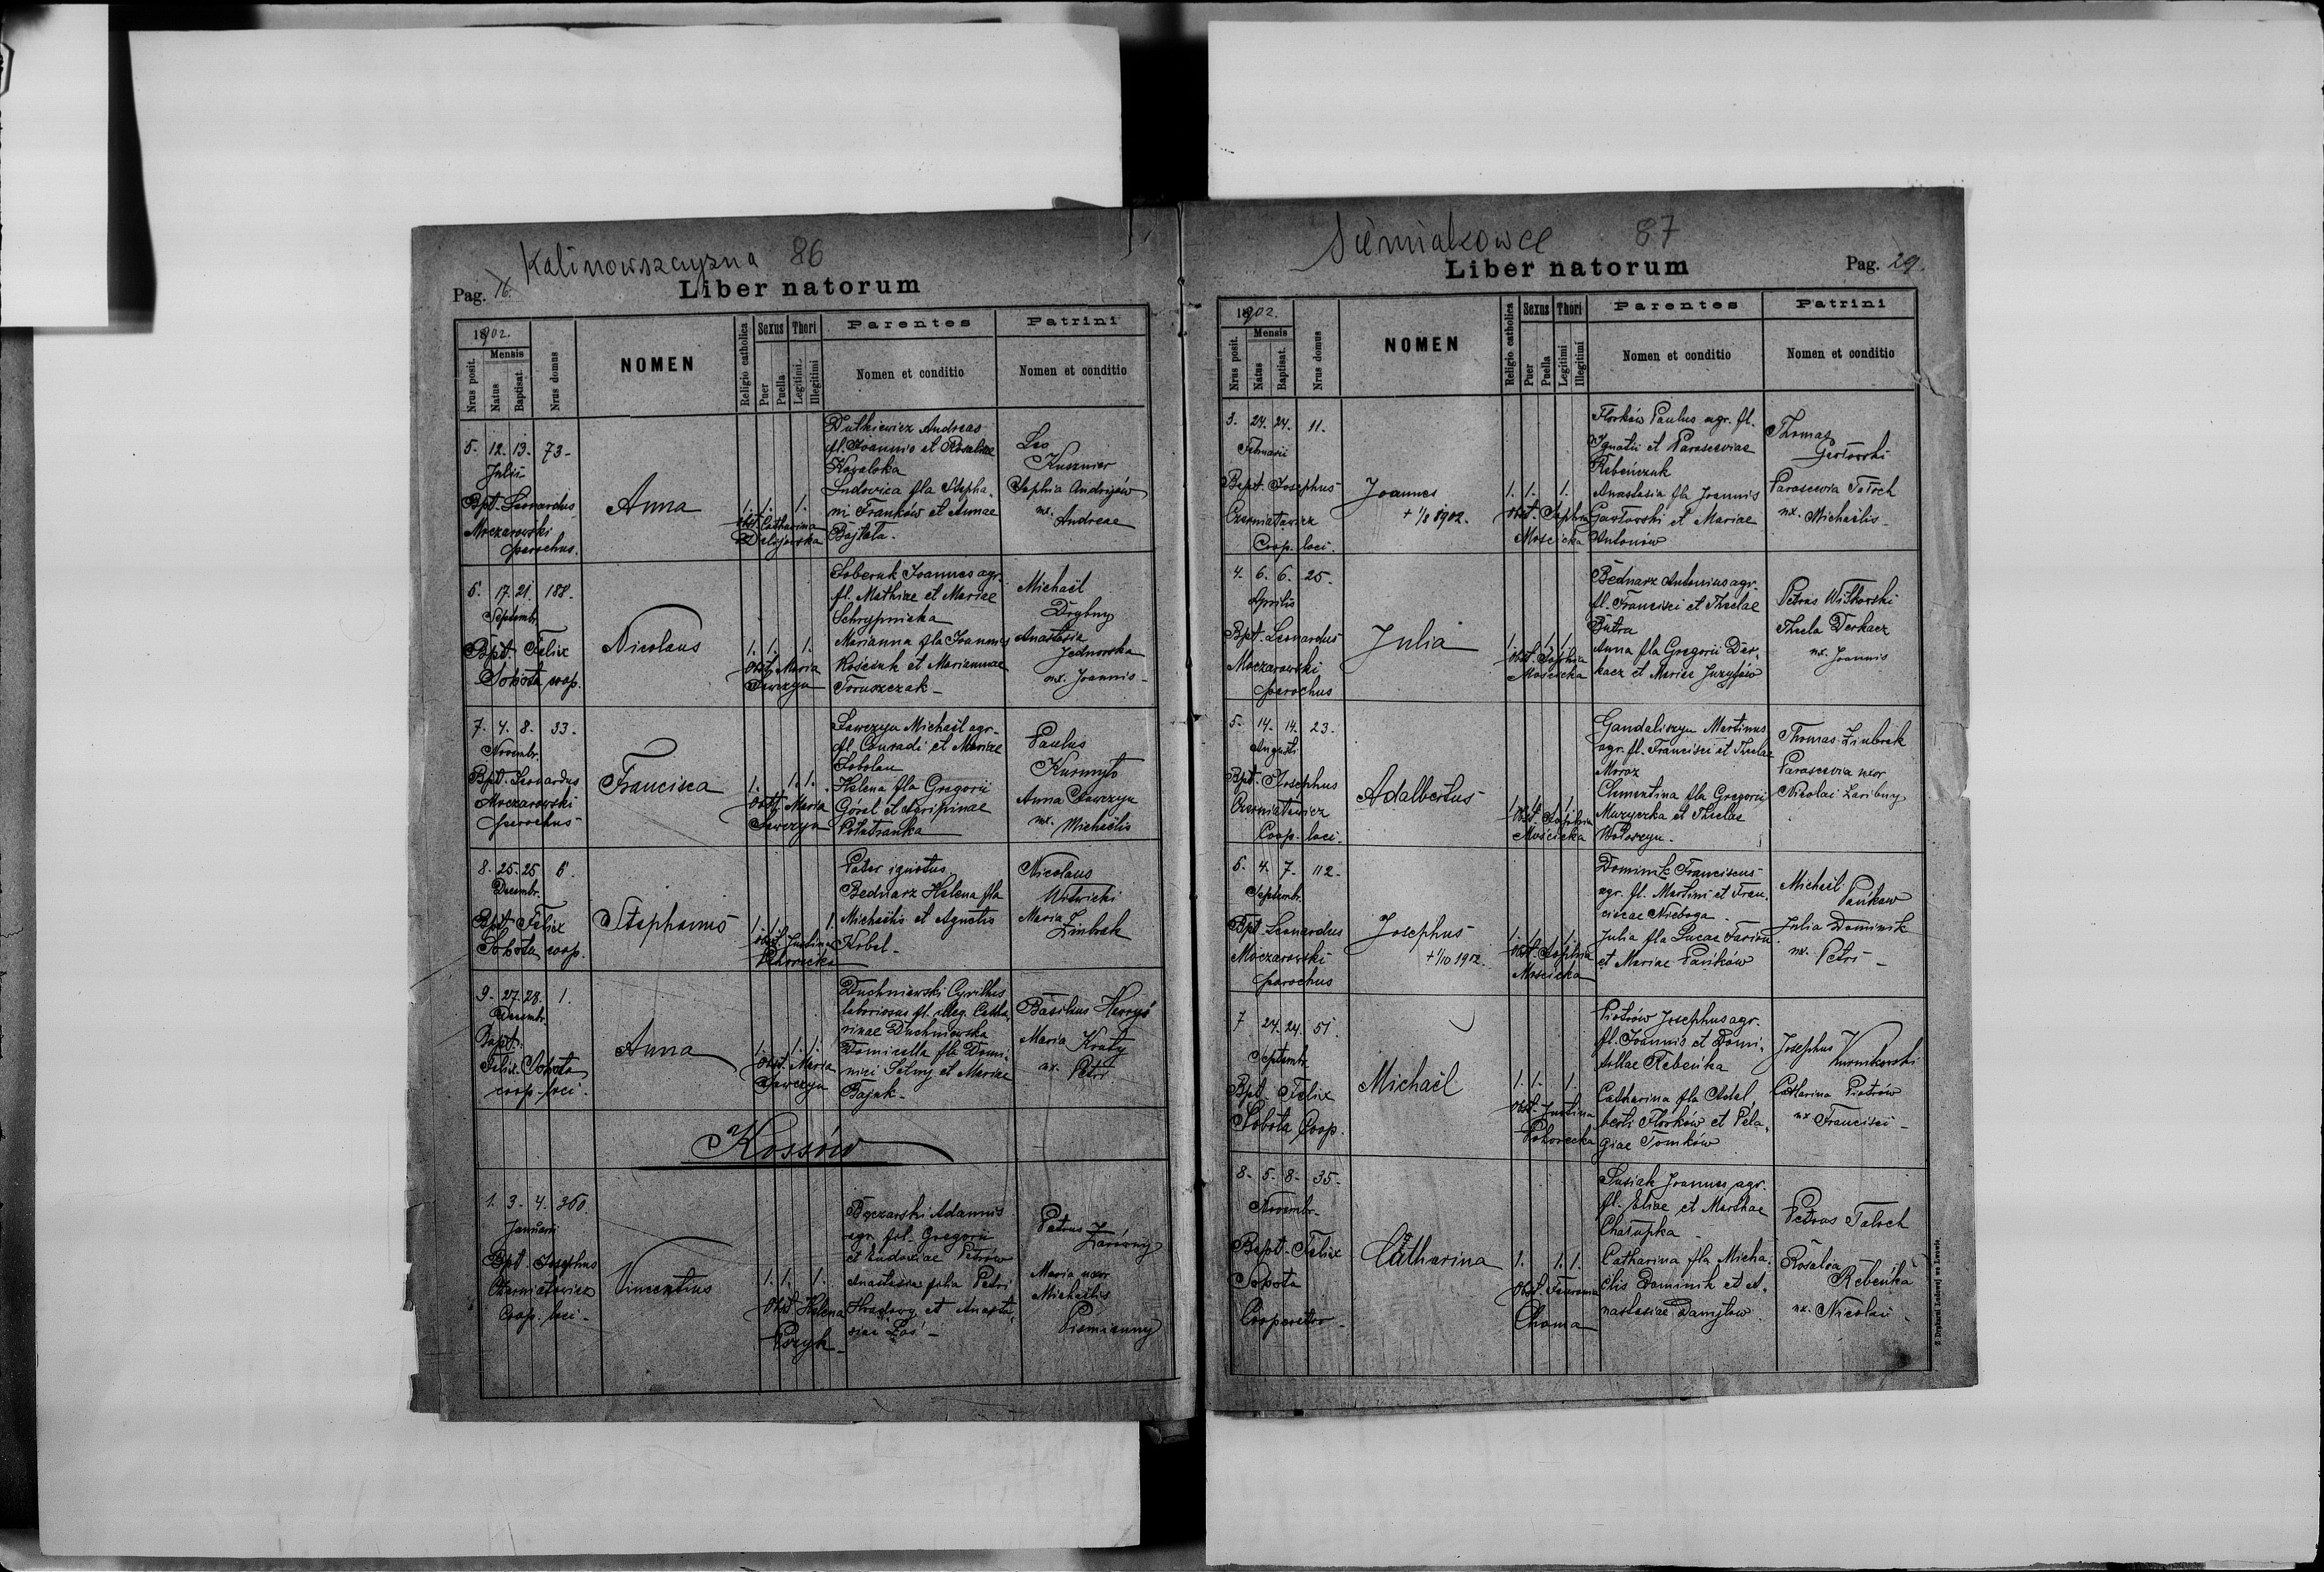 Kalinowszczyzna 86
Pag. 16.
Liber natorum
1902.
Nrus posit.
Mensis
Natus
Baptisat.
Nrus domus
NOMEN
Religio catholica
Sexus
Puer
Puella
Thori
Legitimi.
Illegitimi
Parentes
Nomen et conditio
Patrini
Nomen et conditio
5. 12. 13. 73.
Julii
Bpt. Leonardus
Moczarowski
parochus.
Anna
1. 1. 1.
Obst. Catharina
Dutkiewicz Andreas
fl. Joannis et Rosaliae
Kowalska
Ludovica fla Stepha-
ni Franków et Annae
Bojtala.
Leo
Kusznier
Sophia Andrijów
ux. Andreae
6. 17. 21. 188.
Septembr.
Bpt. Felix
Sobota coop.
Nicolaus
1. 1. 1.
Obst. Maria
Sawczyn
Soberuk Joannes agr.
fl. Mathiae et Mariae
Schrypnicka
Marianna fla Joannis
Kościuk et Mariannae
Toruszczak
Michaël
Drybny
Anastasia
Jednorska
ux. Joannis
7. 4. 8. 33.
Novembr.
Bpt. Leonardus
Moczarowski
parochus
Francisca
1. 1. 1.
Obst. Maria
Sawczyn
Sawczyn Michaël agr.
fl. Conradi et Mariae
Sobolan
Helena fla Gregorii
Górel et Agripinae
Paulus
Kurmyło
Anna Sawczyn
ux. Michaëlis
8. 25. 25 6.
Decembr.
Bpt. Felix
Sobota coop.
Stephanus
1. 1. 1.
Obst. Justina
Pohorecka
Pater ignotus
Bednarz Helena fla
Michaëlis et Agnetis
Kobel
Nicolaus
Witwicki
Maria
Zinbrek
9. 27. 28. 1.
Decembr.
Bapt.
Felix Sobota
coop. loci.
Anna
1. 1. 1.
Obst. Maria
Sawczyn
Duchniewski Cyrillus
laboriosus fl. illeg. Catha-
rinae Duchniewska
Domicella fla Domi-
nici Selny et Mariae
Bajuk
Basilius
Maria Kraty
ux. Petri
Kossów
1. 3. 4. 360.
Januarii
Bpt. Josephus
Czerniatowicz
Coop. loci
Vincentius
1. 1. 1.
Obst. Helena
Pszyk
Bęczarski Adamus
agr. fil. Gregorii
et Eudoxiae Petrów
Anastasia filia Petri
et Anasta-
siae Łoś
Petrus
Zarówny
Maria uxor
Michaëlis
Pismienny
Siemiakowce 87
Liber natorum
Pag. 29.
1902.
Nrus posit.
Mensis
Natus
Baptisat.
Nrus domus
NOMEN
Religio catholica
Sexus
Puer
Puella
Thori
Legitimi
Illegitimi
Parentes
Nomen et conditio
Patrini
Nomen et conditio
3. 24. 24. 11.
Februarii
Bapt. Josephus
Czerniatowicz
Coop. loci.
Joannes
+ 1/8 1902.
1. 1. 1.
Obst. Sophia
Mościcka
Florków Paulus agr. fl.
Ignatii et Parasceviae
Rebeńczuk
Anastasia fla Joannis
Gawłowski et Mariae
Antonów
Thomas
Parascevia Taloch
ux. Michaëlis
4. 6. 6. 25.
Aprilis
Bpt. Leonardus
Moczarowski
parochus
Julia
1. 1. 1.
Obst. Sophia
Mościcka
Bednarz Antonius agr.
fl. Francisci et Theclae
Butra
Anna fla Gregorii Der-
kacz et Mariae Juzyjów
Petrus Witkowski
Thecla Derkacz
ux. Joannis
5. 14. 14. 23.
Augusti
Bpt. Josephus
Czerniatowicz
Coop. loci.
Adalbertus
1. 1. 1.
Obst. Sophia
Mościcka
Gandaliszyn Martinus
agr. fl. Francisci et Theclae
Moroz
Clementina fla Gregorii
Muzyczka et Theclae
Wołoszyn.
Thomas Zinbrek
Parascevia uxor
Nicolai Zaribny
6. 4. 7. 112.
Septembr.
Bpt. Leonardus
Moczarowski
parochus
Josephus
+ 1/10 1902.
1. 1. 1.
Obst. Sophia
Mościcka
Dominik Franciscus
agr. fl. Martini et Fran-
ciscae Nieboga
Julia fla Lucae Farion
et Mariae Pańków
Michaël
Pańkow
Julia Dominik
ux. Petri
7 24. 24. 51.
Septembr.
Bpt. Felix
Sobota Coop.
Michaël
1. 1. 1.
Obst. Justina
Pohorecka
Piotrów Josephus agr.
fl. Joannis et Domi-
cellae Rebeńka
Catharina fla Adal-
berti Florków et Pela-
giae Tomków
Josephus
Kurnikowski
Catharina Piotrów
ux Francisci
8. 5. 8. 35.
Novembr.
Bapt. Felix
Sobota
Cooperator
Catharina
1. 1. 1.
Obst.
Choma
Susiak Joannes agr.
fl. Eliae et Marthae
Chałupka
Catharina fla Micha-
ëlis Dominik et A-
nastasiae Danyłow
Petrus Taloch
Rosalia
Rebeńka
ux. Nicolai
Z Drukarni Ludowej we Lwowie